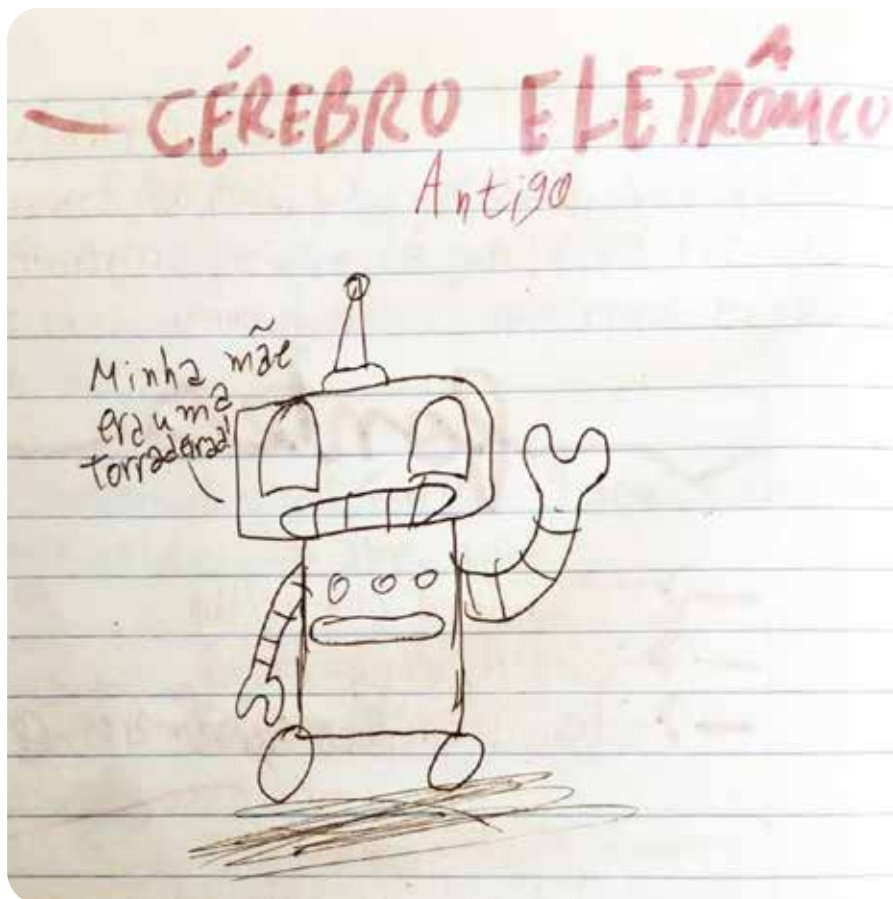 — CÉREBRO ELETRÔNICO
Antigo
Minha mãe
era uma
torradeira!